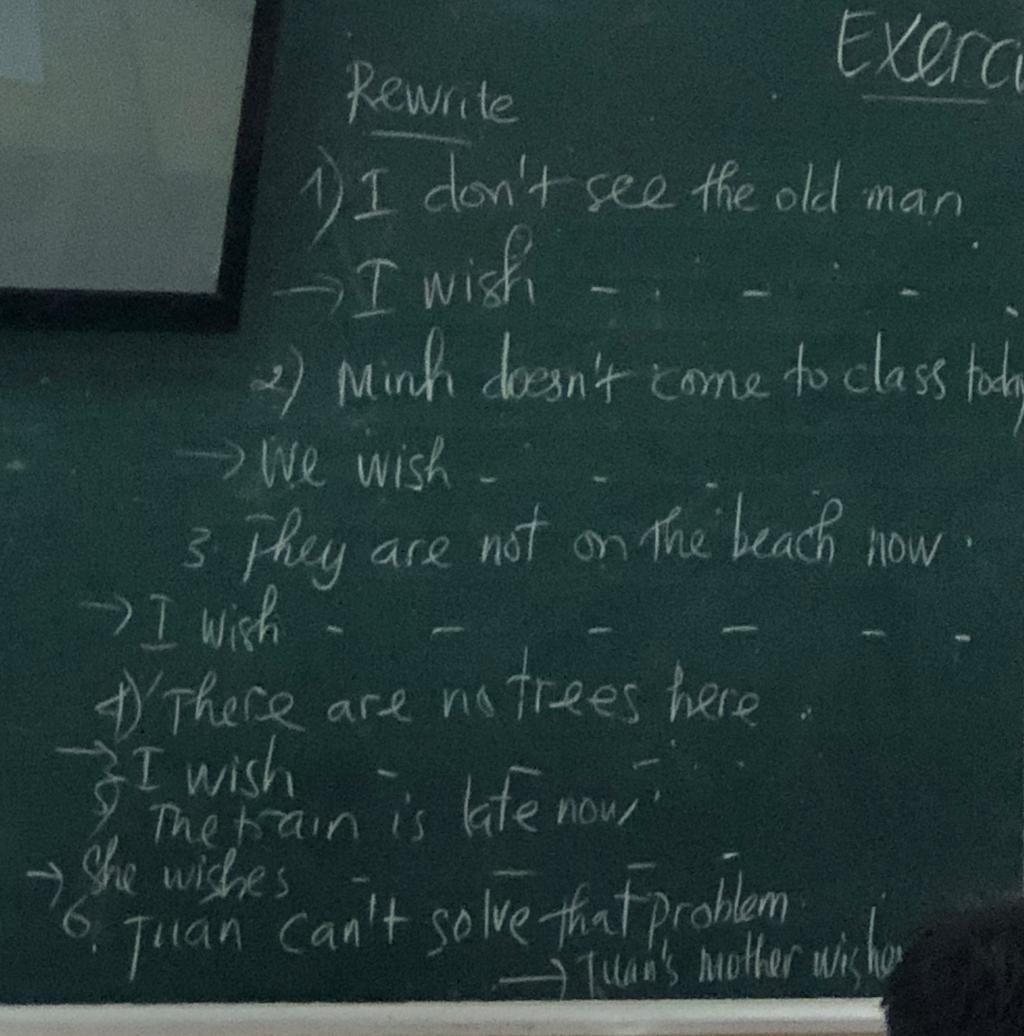 Exerci
Rewrite
1) I don't see the old man
→ I wish - . - . - .
2) Minh doesn't come to class today
→ We wish - - -
3. They are not on the beach now.
→ I wish - - - - - -
4) There are no trees here.
→ I wish - - - . .
5, The train is late now.
→ She wishes - - - -
6. Tuan can't solve that problem.
→ Tuan's mother wishes